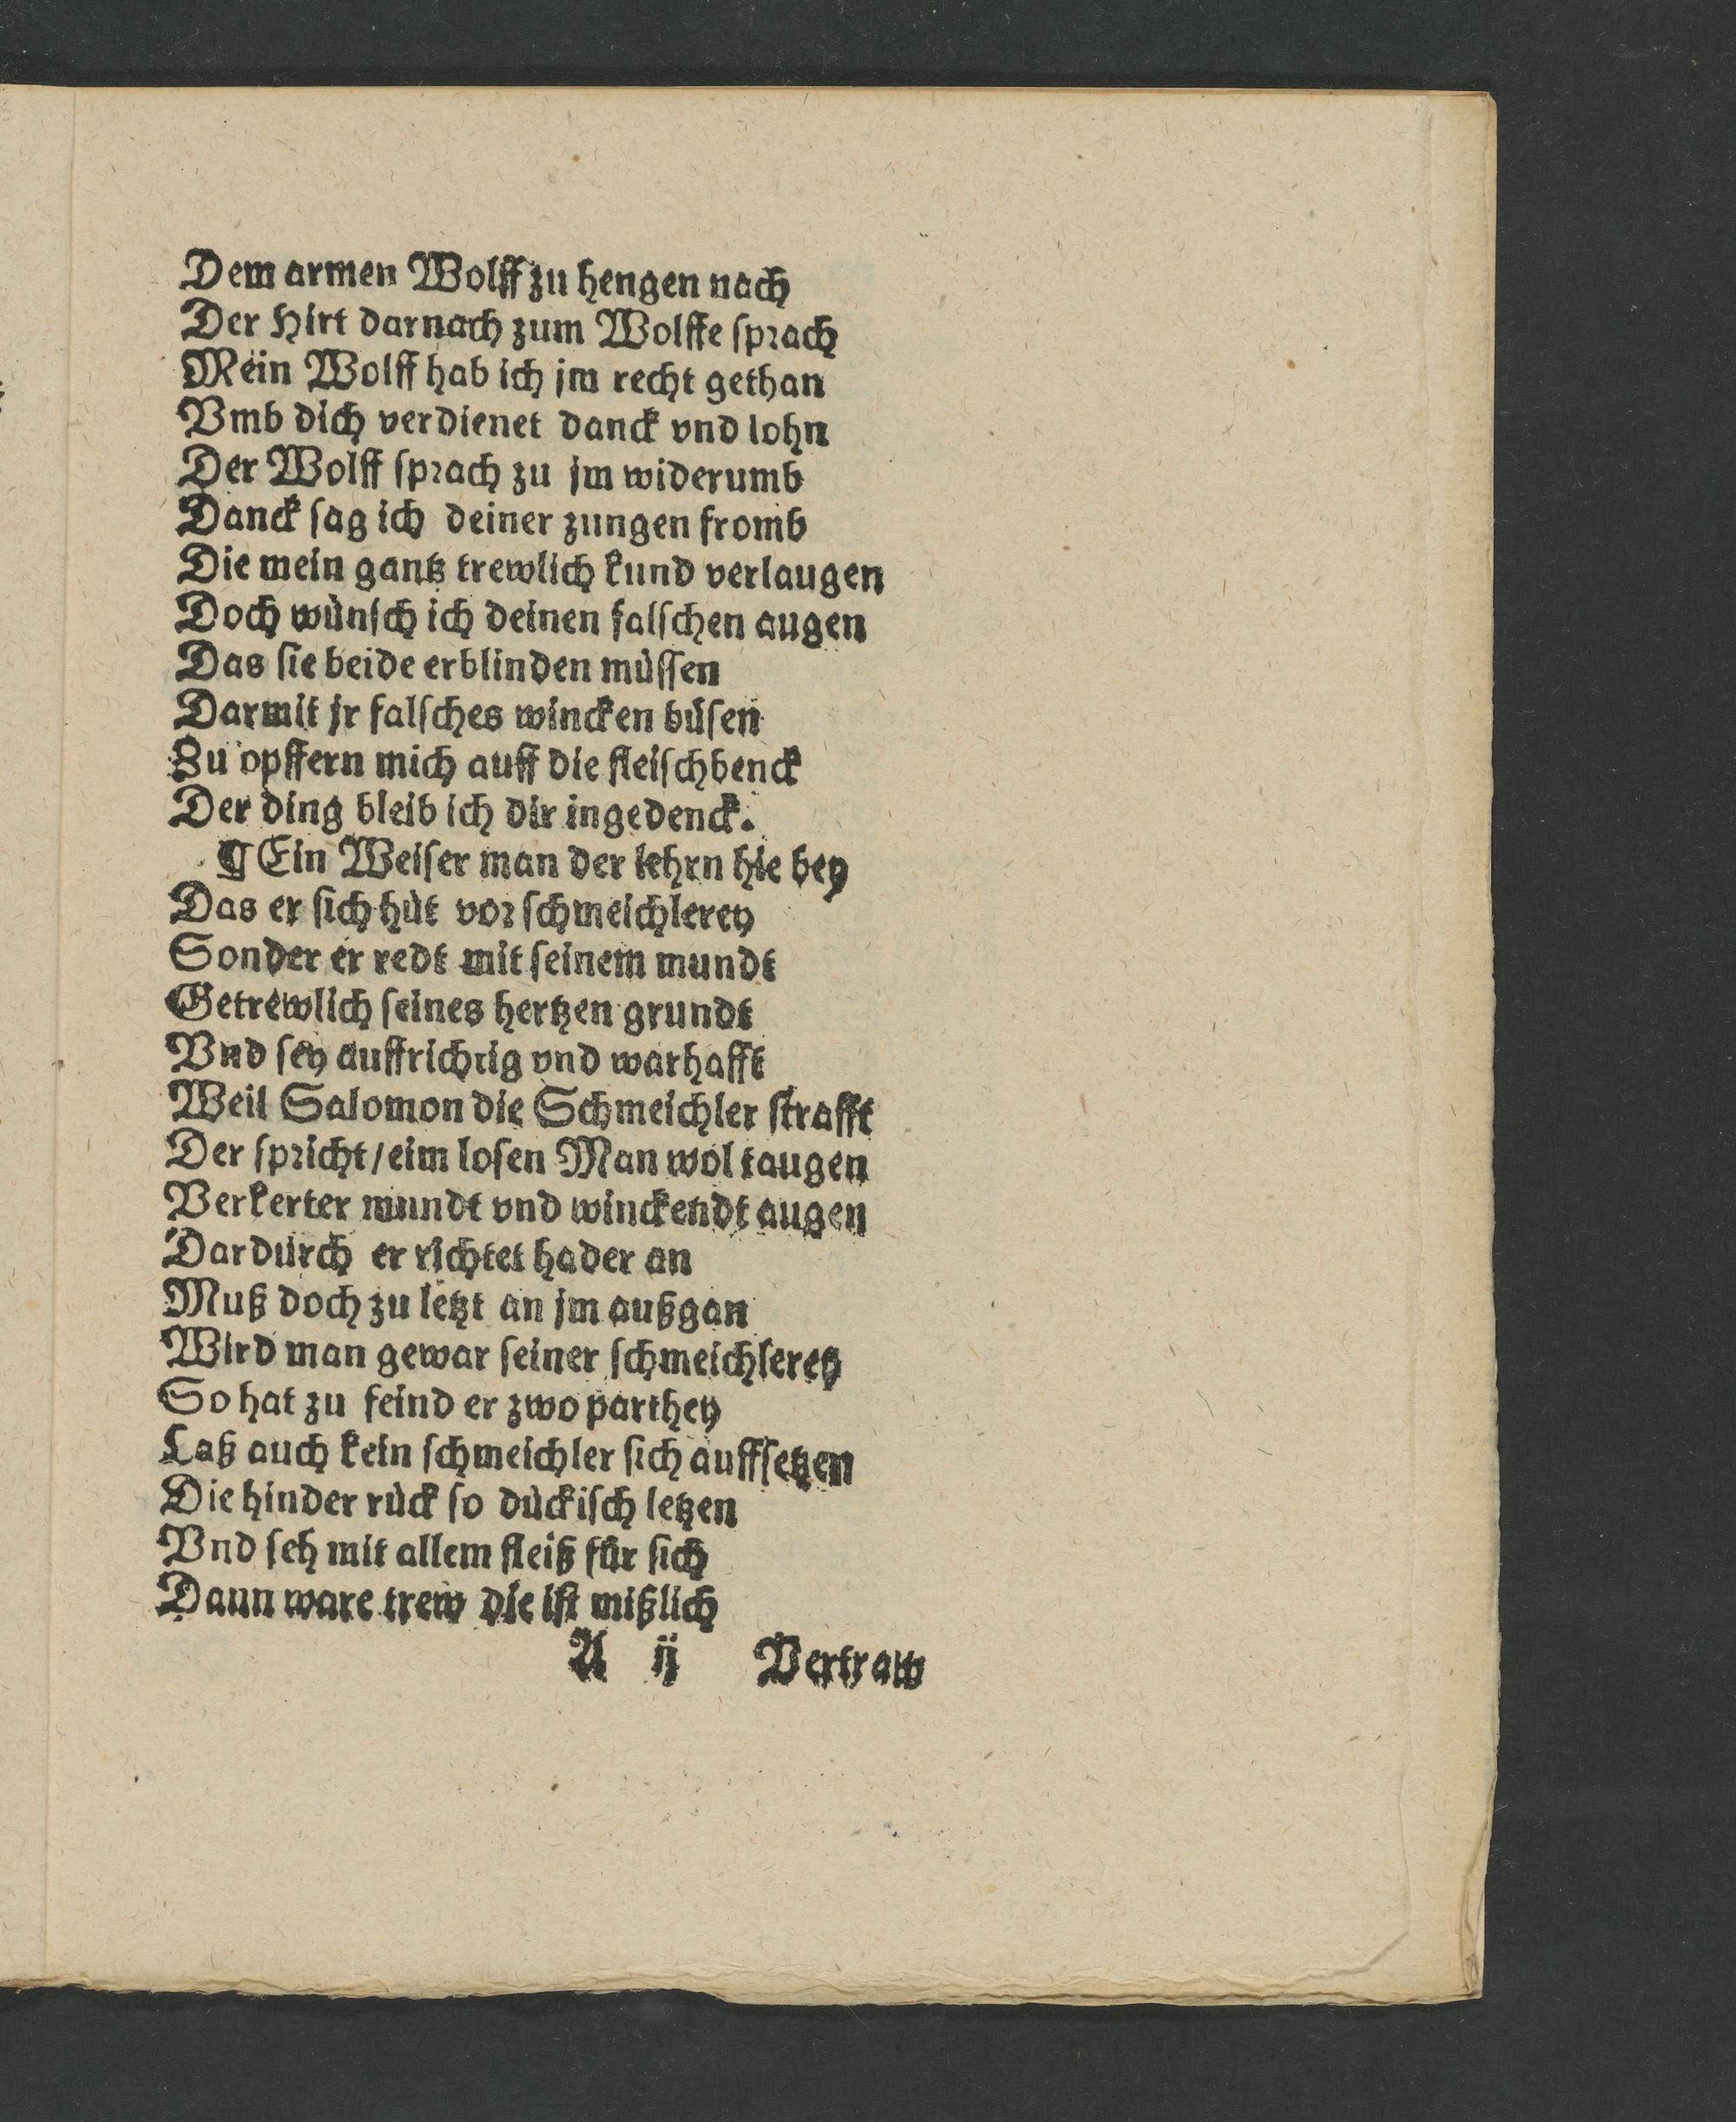 Dem armen Wolff zu hengen nach
Der Hirt darnach zum Wolffe ſprach
Mein Wolff hab ich jm recht gethan
Vmb dich verdienet danck vnd lohn
Der Wolff ſprach zu jm widerumb
Danck ſag ich deiner zungen fromb
Die mein gantz trewlich kund verlaugen
Doch wünſch ich deinen falſchen augen
Das ſie beide erblinden müſſen
Darmit jr falſches wincken büſen
Zu opffern mich auff die fleiſchbenck
Der ding bleib ich dir ingedenck.
¶ Ein Weiſer man der lehrn hie bey
Das er ſich hüt vor ſchmeichlerey
Sonder er redt mit ſeinem mundt
Getrewlich ſeines hertzen grundt
Vnd ſey auffrichtig vnd warhafft
Weil Salomon die Schmeichler ſtrafft
Der ſpricht / eim loſen Man wol taugen
Verkerter mundt vnd winckendt augen
Dardurch er richtet hader an
Muß doch zu letzt an jm außgan
Wird man gewar ſeiner ſchmeichlerey
So hat zu feind er zwo parthey
Laß auch kein ſchmeichler ſich auffſetzen
Die hinder rück ſo dückiſch letzen
Vnd ſeh mit allem fleiß für ſich
Dann ware trew die iſt mißlich
A ij Vertraw